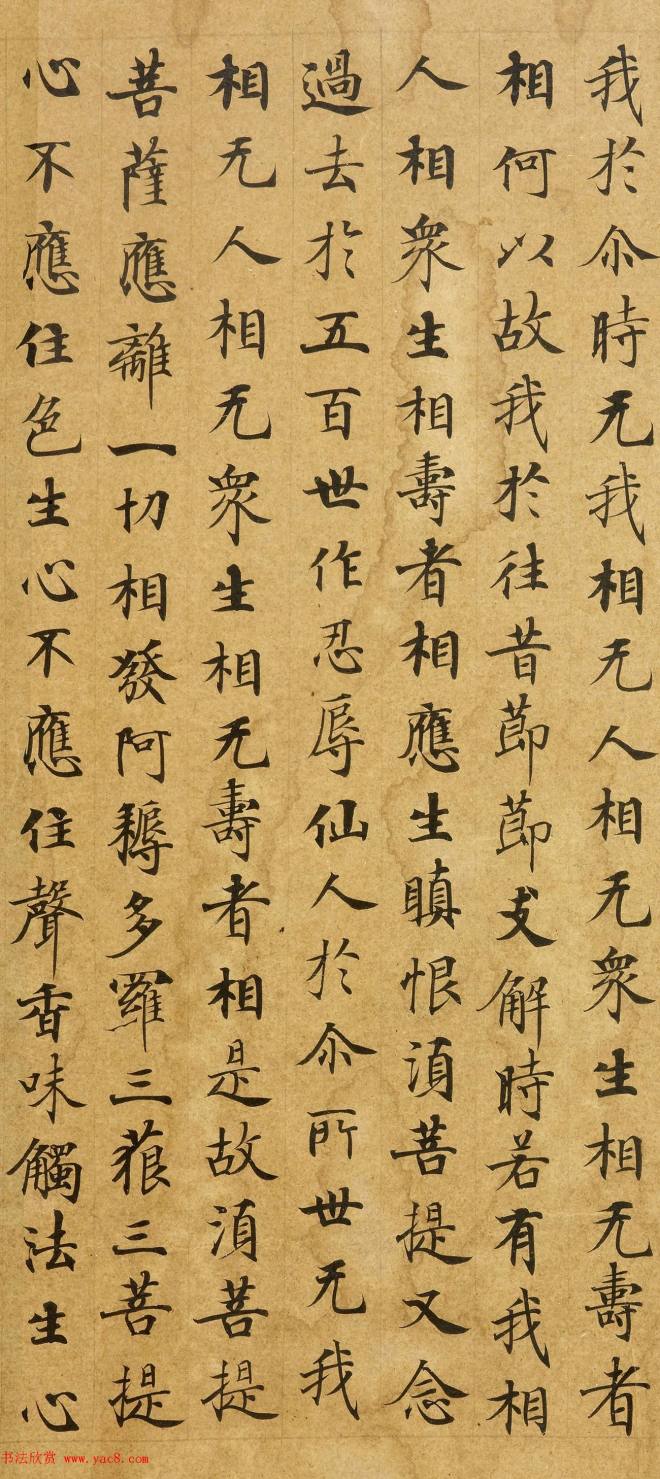 我於尒時无我相无人相无衆生相无壽者
相何以故我於往昔節節支解時若有我相
人相衆生相壽者相應生瞋恨湏菩提又念
過去於五百世作忍辱仙人於尒所世无我
相无人相无衆生相无壽者相是故湏菩提
菩薩應離一切相發阿耨多羅三藐三菩提
心不應住色生心不應住聲香味觸法生心
书法欣赏 www.yac8.com